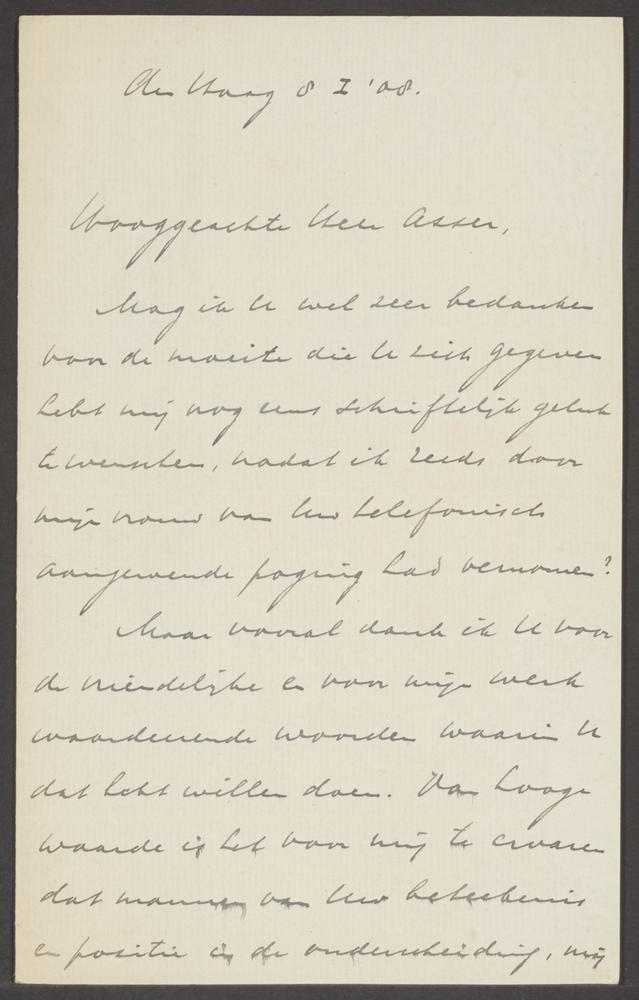 Den Haag 8 I '08.
Hooggeachte Heer Asser,
Mag ik U wel zeer bedanken
voor de moeite die U zich gegeven
hebt mij nog eens schriftelijk geluk
te wenschen, nadat ik reeds door
mijn vrouw van Uw telefonisch
aangewende poging had vernomen?
Maar vooral dank ik U voor
de vriendelijke en voor mijn werk
waardeerende woorden waarin U
dat hebt willen doen. Van hooge
waarde is het voor mij te ervaren
dat mannen van Uw beteekenis
en positie in de onderscheiding, mij